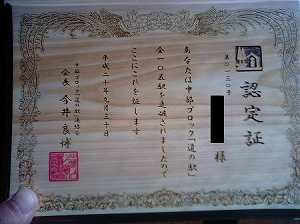 認定証
様
あなたは中部ブロック「道の駅」
全一〇五駅を破されましたので
ここにこれを証します
平成二十年九月三十日
中部ブロック「道の駅」連絡会
会長 今井良博